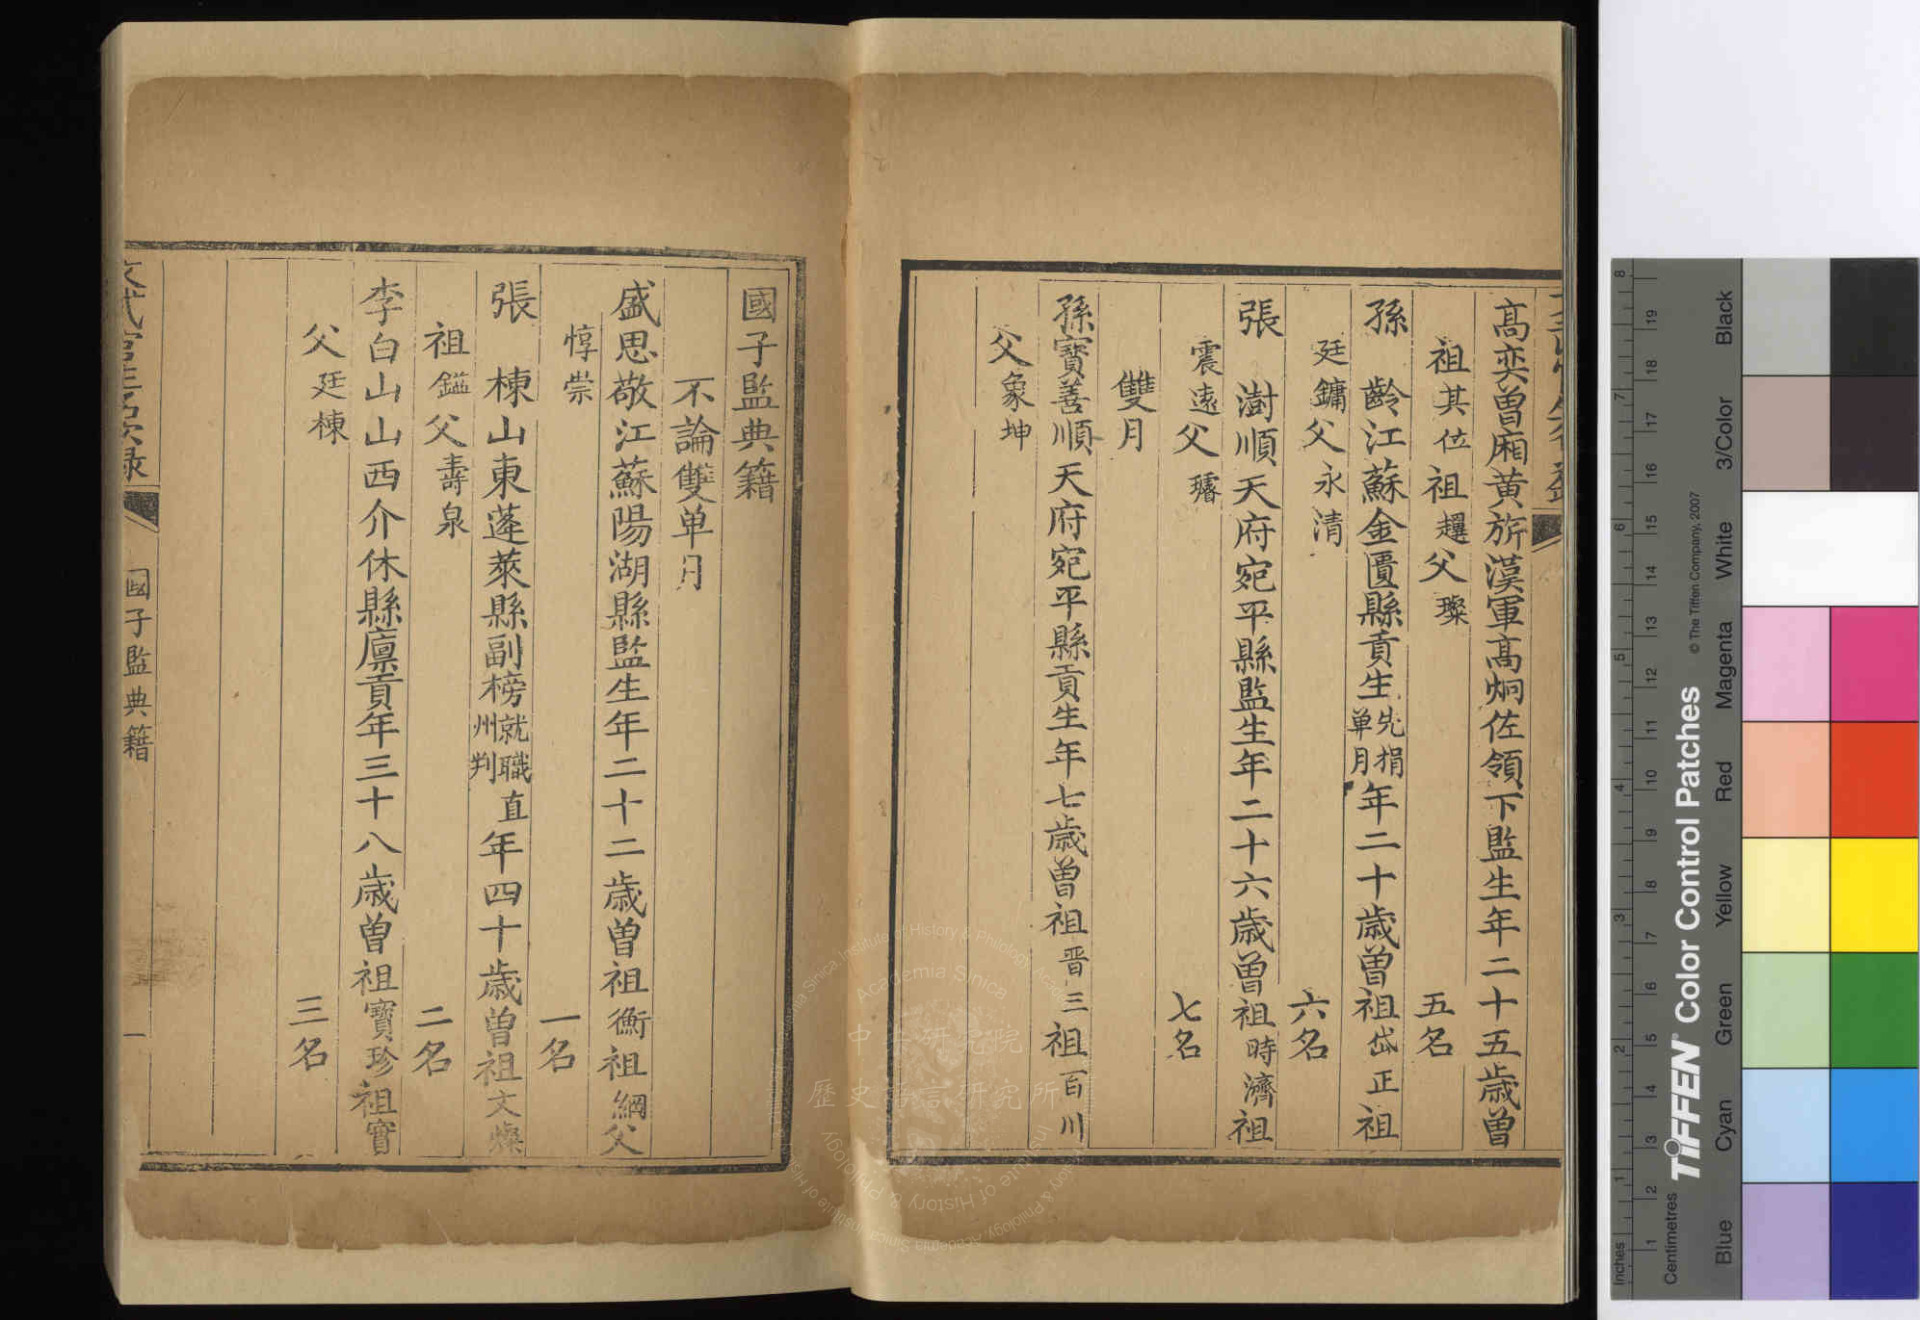 高奕曾廂黄旂漢軍高炯佐領下監生年二十五歲曾
祖其位祖趯父璨
五名
孫 齡江蘇金匱縣貢生先捐單月年二十歲曾祖岱正祖
廷鏞父永清
六名
張 澍順天府宛平縣監生年二十六歲曾祖時濟祖
震遠父璿
七名
雙月
孫寳善順天府宛平縣貢生年七歲曾祖晋三祖百川
父象坤
國子監典籍
不論雙单月
盛思敬江蘇陽湖縣監生年二十二歲曾祖衡祖綱父
惇崇
一名
張 棟山東蓬萊縣副榜就職直州判年四十歲曾祖文燦
祖鎰父壽泉
二名
李白山山西介休縣廩貢年三十八歲曾祖寳珍祖實
父廷棟
三名
國子監典籍
一
TIFFEN Color Control Patches
© The Tiffen Company, 2007
Inches
Centimetres
Blue
Cyan
Green
Yellow
Red
Magenta
White
3/Color
Black
Academia Sinica
中央研究院
歷史語言研究所
Institute of History & Philology